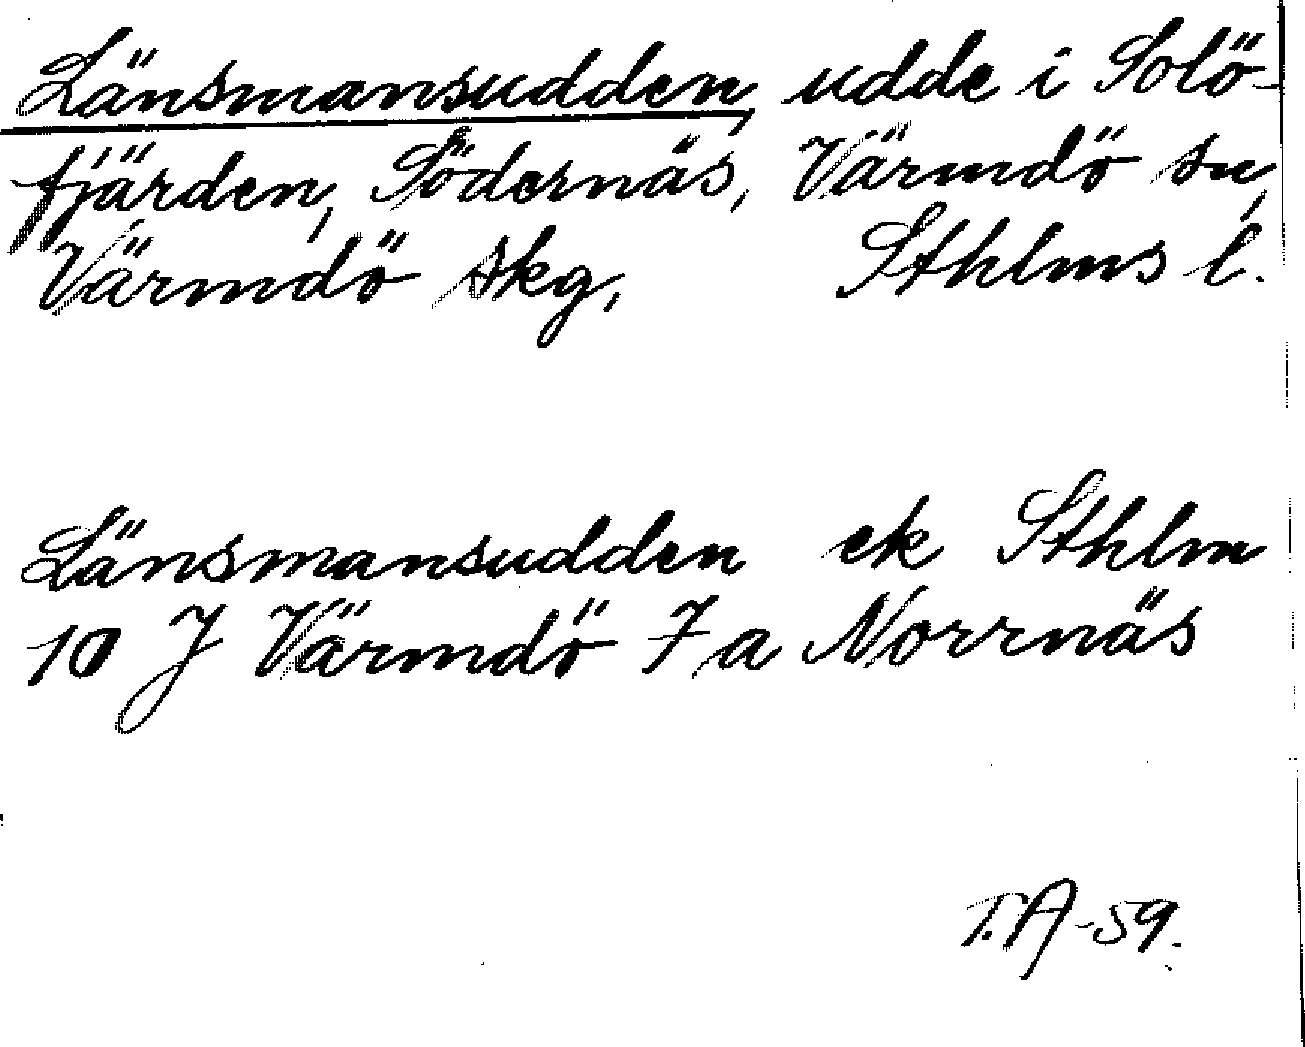 Länsmansudden, udde i Solö-
fjärden, Södernäs, Värmdö sn,
Värmdö skg, Sthlms l.
Länsmansudden ek Sthlm
10 J Värmdö 7 a Norrnäs
T.A-59.